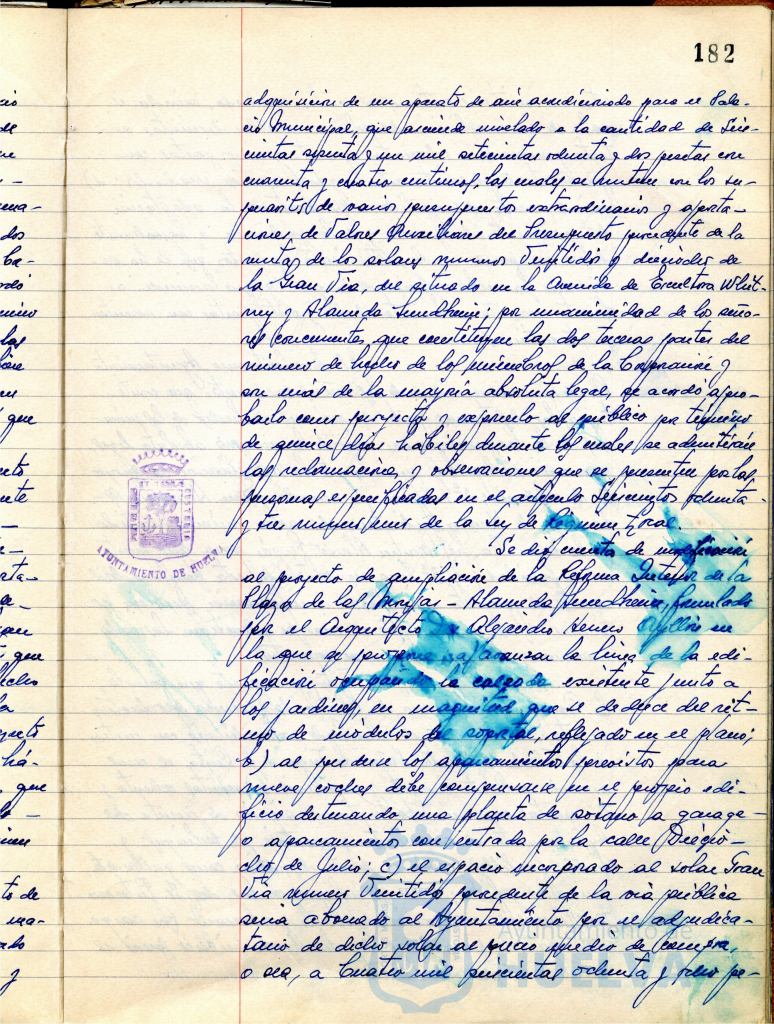 182
adquisición de un aparato de aire acondicionado para el Pala-
cio Municipal, que asciende nivelado a la cantidad de Seis-
cientas sesenta y un mil setecientas ochenta y dos pesetas con
cuarenta y cuatro centimos, los cuales se nutren con los su-
de varios presupuestos extraordinarios y aporta-
ciones, de Valores Auxiliares del Presupuesto procedente de la
venta de los solares numeros Veintidós y dieciocho de
la Gran Via, del situado en la Avenida de Escultora Whit-
ney y Alameda Sundheim; por unanimidad de los seño-
res concurrentes, que constituyen las dos terceras partes del
número de hecho de los miembros de la Corporación, y
son más de la mayoría absoluta legal, se acordó apro-
barlo como proyecto y exponerlo al público por término
de quince días hábiles durante los cuales se admitirán
las reclamaciones y observaciones que se presenten por las
personas especificadas en el artículo Seiscientos ochenta
y tres número uno de la Ley de Régimen Local.
Se dió cuenta de modificación
al proyecto de ampliación de la Reforma Interior de la
Plaza de las Monjas - Alameda Sundheim, formulado
por el Arquitecto Alejandro Herrero en
la que se propone: a) avanzar la línea de la edi-
ficación ocupando la calzada existente junto a
los jardines, en magnitud que se deduce del rit-
mo de módulos del soportal, reflejado en el plano;
b) al perderse los aparcamientos previstos para
nueve coches debe compensarse en el propio edi-
ficio destinando una planta de sótano a garage
o aparcamientos con entrada por la calle Diecio-
cho de Julio; c) el espacio incorporado al solar Gran
Via número Veintidós procedente de la via pública
seria abonado al Ayuntamiento por el adjudica-
tario de dicho solar al precio medio de compra,
o sea, a Cuatro mil seiscientas ochenta y ocho pe-
AYUNTAMIENTO DE HUELVA
Ayuntamiento de
HUELVA